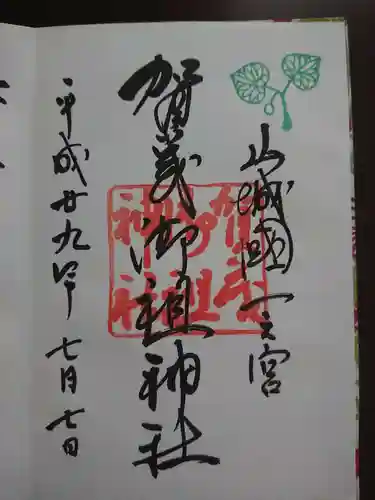 山城國一之宮
賀茂御祖神社
平成廿九年七月七日
賀茂御祖神社